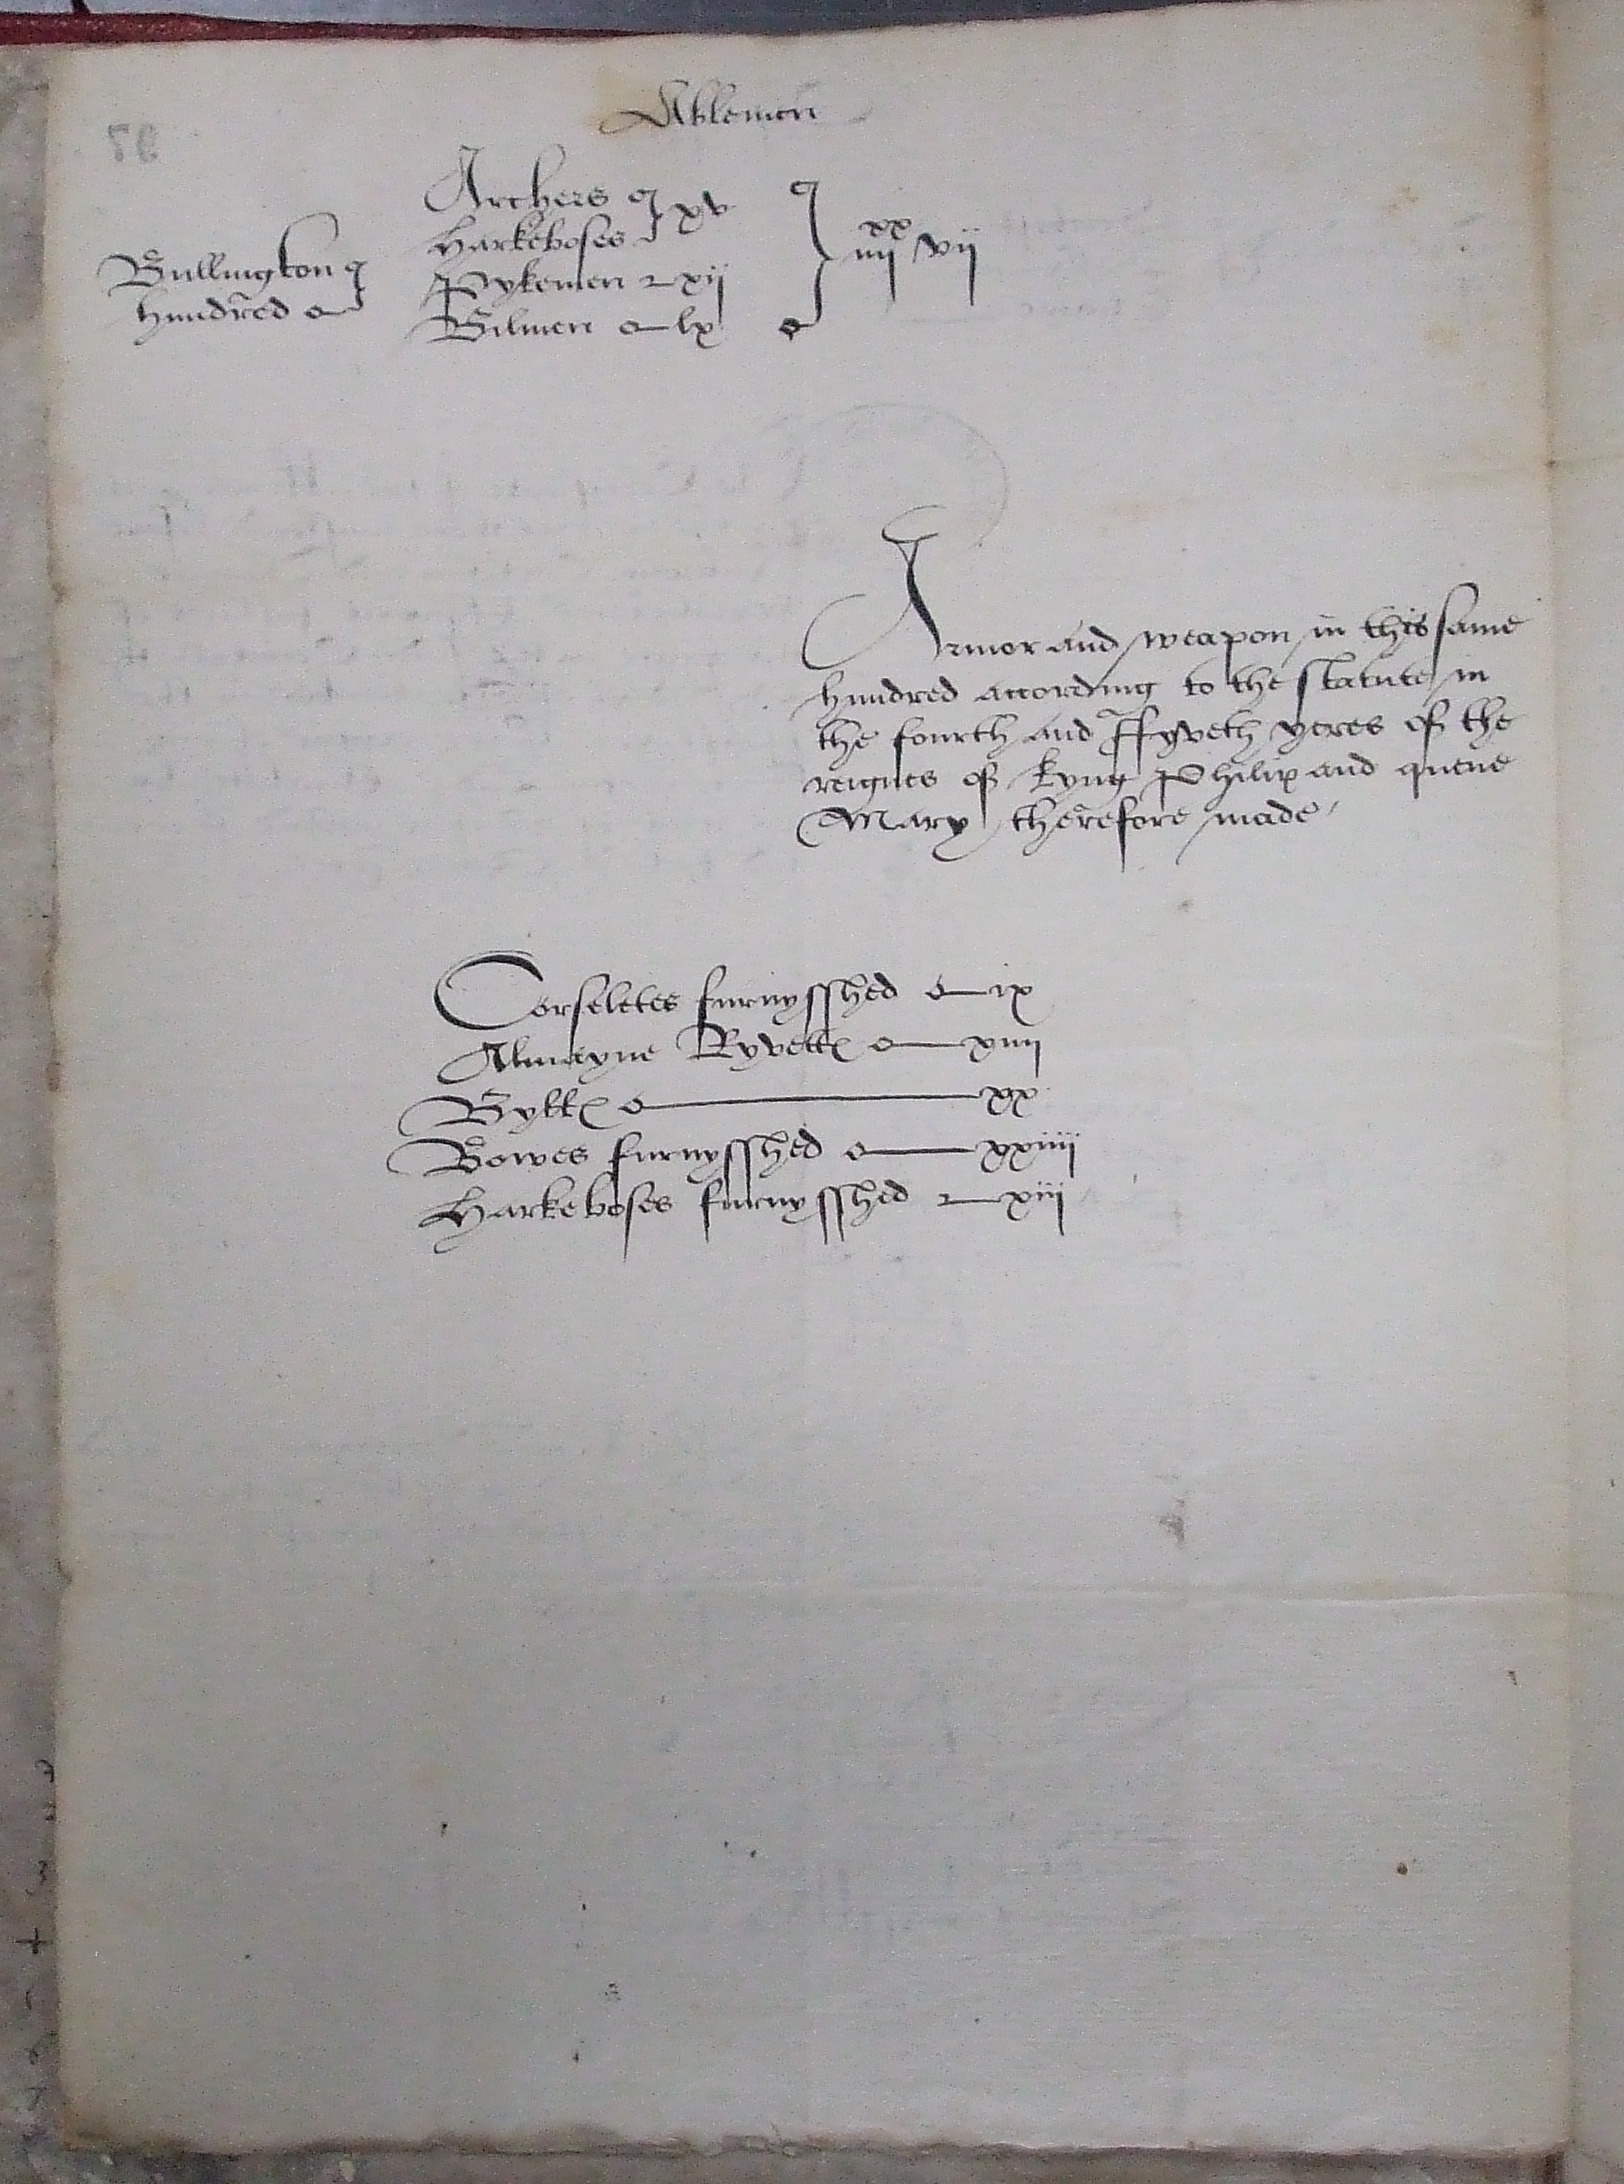 Ablemen
Archers
Harkeboses } xv
Bullington
hundred
Pykemen xij
Bilmen lx
xx
iiij vij
Armor and weapon in this same
hundred according to the statute in
the fourth and ffyveth yeres of the
reignes of kyng Philip and quene
Mary therefore made
Corseletes furnysshed ix
Almayne Ryvettes xiiij
Bylles xx
Bowes furnysshed xxiiij
Harkeboses furnysshed xiij